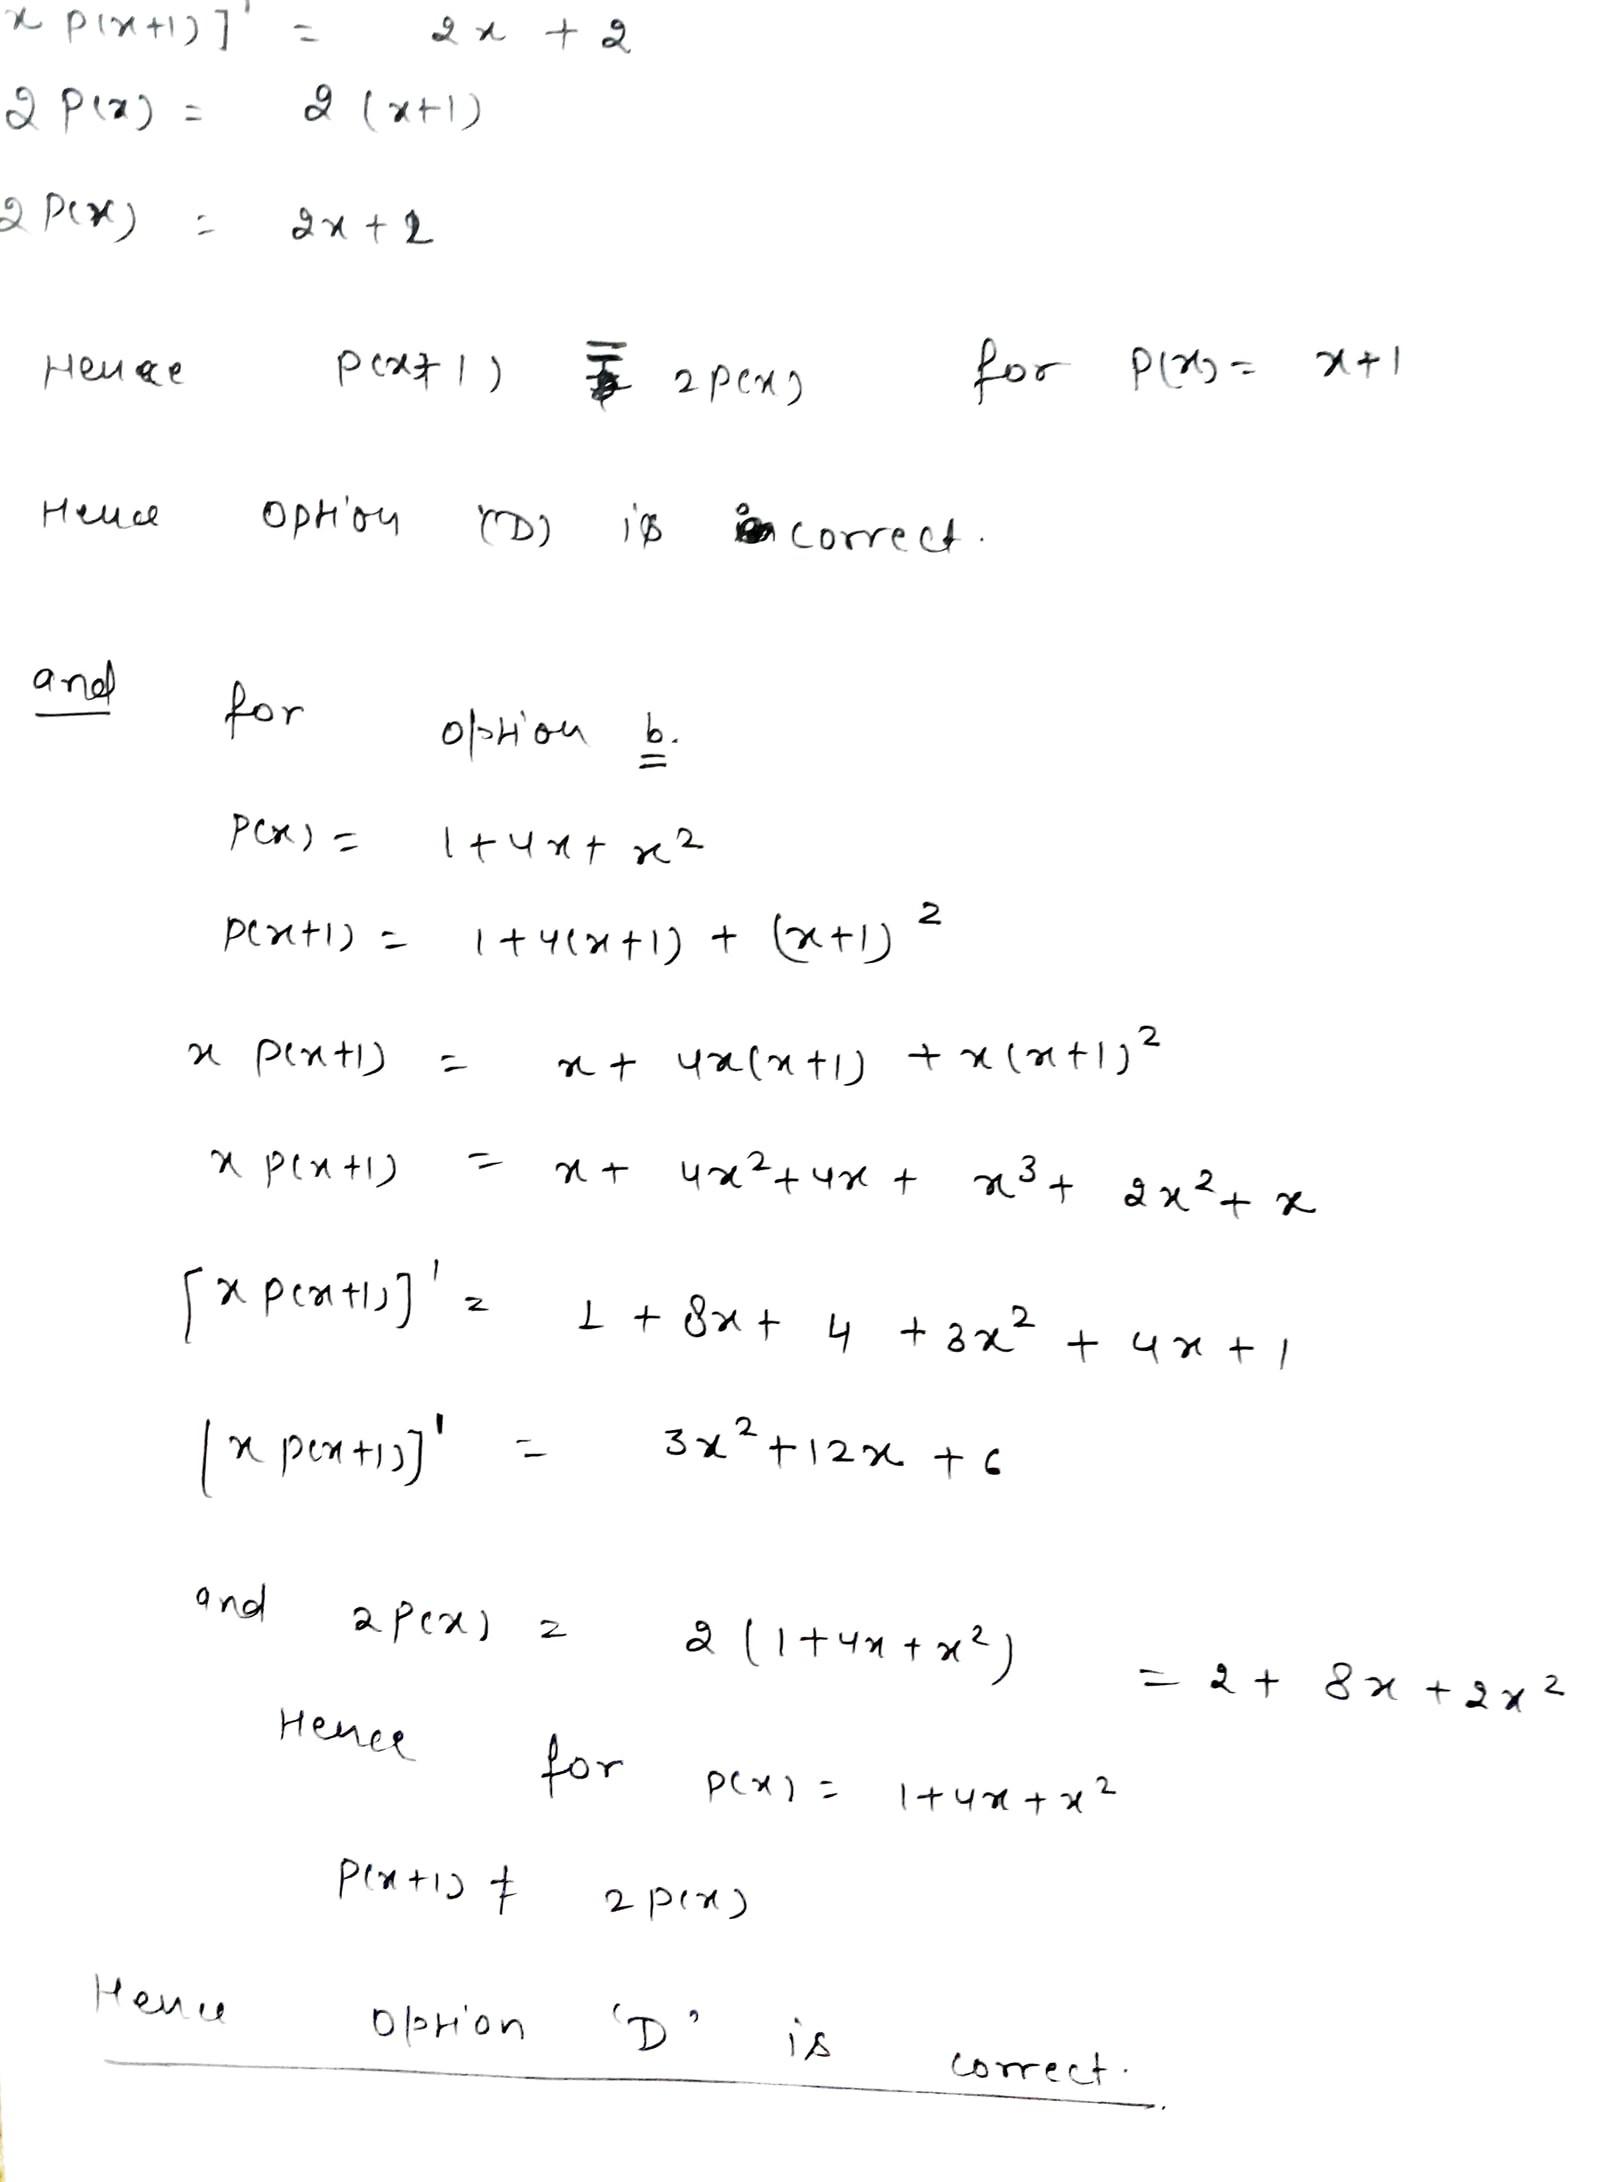 x p(x+1)]' = 2x + 2
2 P(x) = 2(x+1)
2 P(x) = 2x + 2
Hence p(x+1) = 2p(x) for P(x) = x+1
Hence option (D) is correct.
and for option b.
P(x) = 1+4x+x²
P(x+1) = 1+4(x+1) + (x+1)²
x p(x+1) = x + 4x(x+1) + x(x+1)²
x p(x+1) = x + 4x²+4x + x³+ 2x²+ x
[x p(x+1)]' = 1 + 8x + 4 + 3x² + 4x + 1
[x p(x+1)]' = 3x²+12x + 6
and 2p(x) = 2(1+4x+x²) = 2 + 8x + 2x²
Hence for p(x) = 1+4x+x²
P(x+1) ≠ 2p(x)
Hence option 'D' is correct.